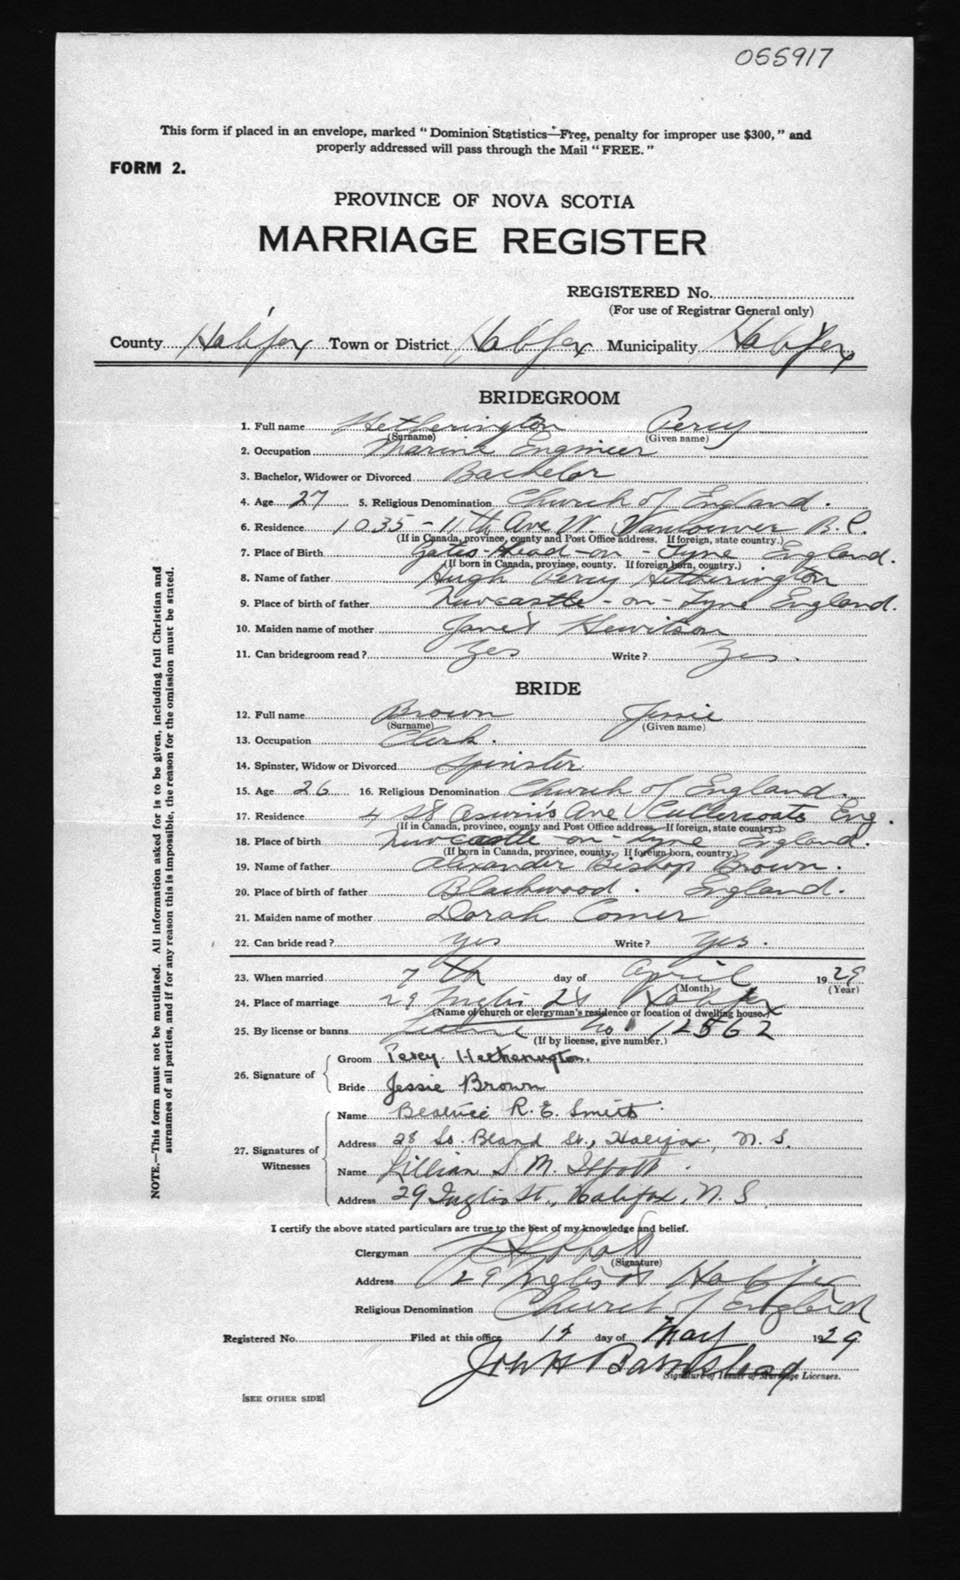 055917
This form if placed in an envelope, marked "Dominion Statistics—Free, penalty for improper use $300," and
properly addressed will pass through the Mail "FREE."
FORM 2.
PROVINCE OF NOVA SCOTIA
MARRIAGE REGISTER
REGISTERED No.
(For use of Registrar General only)
County Halifax Town or District Halifax Municipality Halifax
BRIDEGROOM
1. Full name Hetherington Percy
(Surname) (Given name)
2. Occupation Marine Engineer
3. Bachelor, Widower or Divorced Bachelor
4. Age 27 5. Religious Denomination Church of England.
6. Residence 1035 - 11th Ave W. Vancouver B.C.
(If in Canada, province, county and Post Office address. If foreign, state country.)
7. Place of Birth Gates-Head-on-Tyne England.
(If born in Canada, province, county. If foreign born, country.)
8. Name of father Hugh Percy Hetherington
9. Place of birth of father Newcastle-on-Tyne England.
10. Maiden name of mother Jane Hewitson
11. Can bridegroom read? Yes Write? Yes.
BRIDE
12. Full name Brown Jessie
(Surname) (Given name)
13. Occupation Clerk.
14. Spinster, Widow or Divorced Spinster
15. Age 26 16. Religious Denomination Church of England.
17. Residence 4 28 Ave Cullercoats Eng.
(If in Canada, province, county and Post Office address. If foreign, state country.)
18. Place of birth Newcastle-on-Tyne England.
(If born in Canada, province, county. If foreign born, country.)
19. Name of father Alexander Bishop Brown.
20. Place of birth of father Blackwood. England.
21. Maiden name of mother Dorah Comer
22. Can bride read? Yes Write? Yes.
23. When married 7th day of April 1929
(Month) (Year)
24. Place of marriage 29 Inglis St Halifax
(Name of church or clergyman's residence or location of dwelling house)
25. By license or banns License No. 12562
(If by license, give number.)
26. Signature of
Groom Percy Hetherington.
Bride Jessie Brown
27. Signatures of Witnesses
Name Beatrice R. E. Smith
Address 28 So. Bland St., Halifax, N.S.
Name Lillian S. M.
Address 29 Inglis St., Halifax, N.S.
I certify the above stated particulars are true to the best of my knowledge and belief.
Clergyman
(Signature)
Address 29 Inglis St Halifax
Religious Denomination Church of England
Registered No. Filed at this office 15 day of May 1929
Signature of Issuer of Marriage Licenses.
[SEE OTHER SIDE]
NOTE.—This form must not be mutilated. All information asked for is to be given, including full Christian and
surnames of all parties, and if for any reason this is impossible, the reason for the omission must be stated.